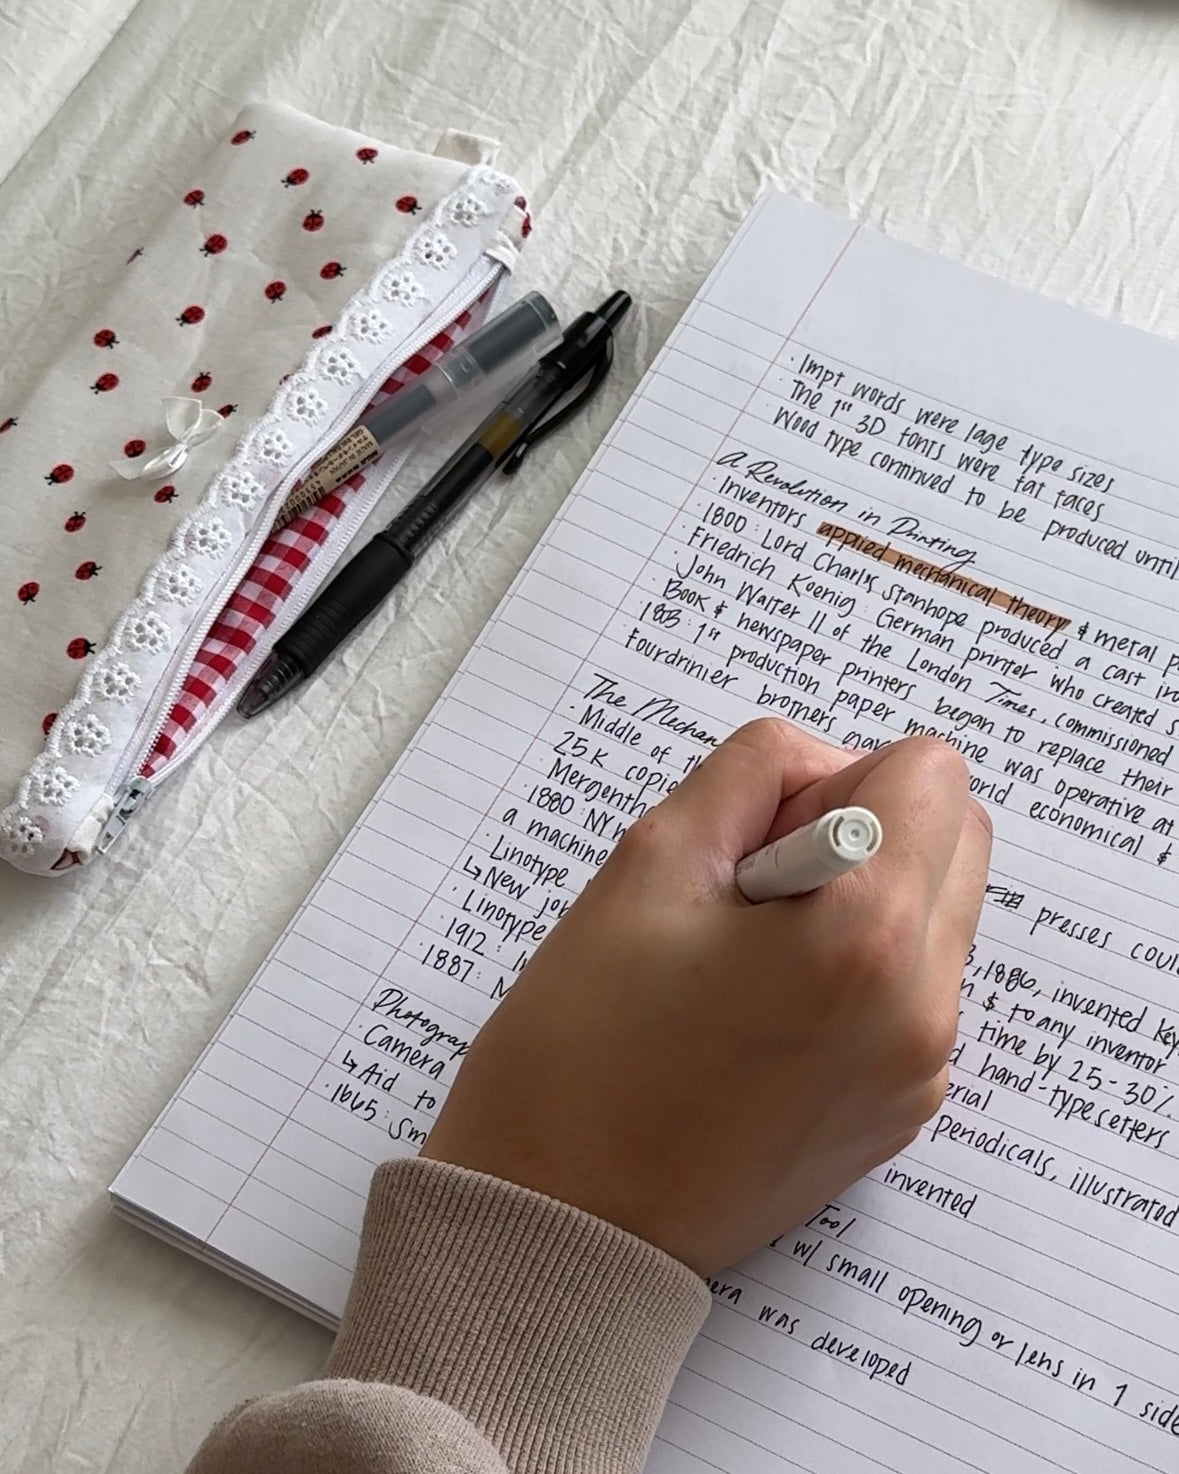 · Impt words were lage type sizes
· The 1st 3D fonts were fat faces
· Wood type continued to be produced until
A Revolution in Printing
· Inventors applied mechanical theory & metal p
· 1800: Lord Charls Stanhope produced a cast iro
· Friedrich Koenig: German printer who created s
· John Walter II of the London Times, commissioned
· Book & newspaper printers began to replace their
· 1803: 1st production paper machine was operative at
· Fourdrinier brothers gav world economical &
The Mechan
· Middle of th presses coul
25K copie
· Mergentha 3, 1886, invented key
· 1880: NY n $ to any inventor
a machine time by 25-30%
· Linotype d hand-typesetters
↳ New job erial
· Linotype periodicals, illustrated
· 1912: I
· 1887: M invented
Photograp Tool
· Camera w/ small opening or lens in 1 side
↳ Aid to
· 1665: Sm era was developed